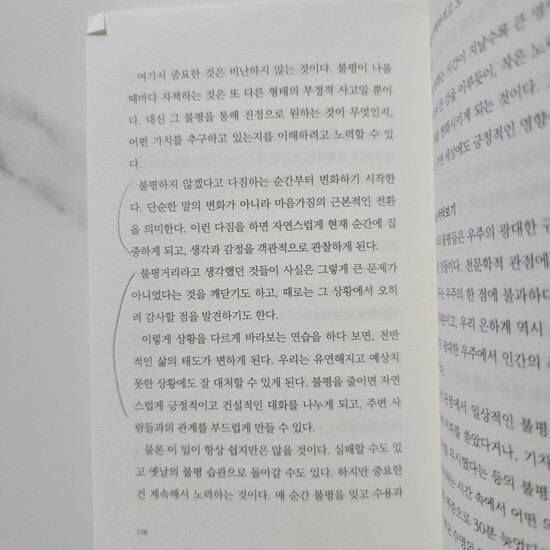 여기서 중요한 것은 비난하지 않는 것이다. 불평이 나올
때마다 자책하는 것은 또 다른 형태의 부정적 사고일 뿐이
다. 대신 그 불평을 통해 진정으로 원하는 것이 무엇인지,
어떤 가치를 추구하고 있는지를 이해하려고 노력할 수 있
다.
불평하지 않겠다고 다짐하는 순간부터 변화하기 시작한
다. 단순한 말의 변화가 아니라 마음가짐의 근본적인 전환
을 의미한다. 이런 다짐을 하면 자연스럽게 현재 순간에 집
중하게 되고, 생각과 감정을 객관적으로 관찰하게 된다.
불평거리라고 생각했던 것들이 사실은 그렇게 큰 문제가
아니었다는 것을 깨닫기도 하고, 때로는 그 상황에서 오히
려 감사할 점을 발견하기도 한다.
이렇게 상황을 다르게 바라보는 연습을 하다 보면, 전반
적인 삶의 태도가 변하게 된다. 우리는 유연해지고 예상치
못한 상황에도 잘 대처할 수 있게 된다. 불평을 줄이면 자연
스럽게 긍정적이고 건설적인 대화를 나누게 되고, 주변 사
람들과의 관계를 부드럽게 만들 수 있다.
물론 이 일이 항상 쉽지만은 않을 것이다. 실패할 수도 있
고 옛날의 불평 습관으로 돌아갈 수도 있다. 하지만 중요한
건 계속해서 노력하는 것이다. 매 순간 불평을 잊고 수용과
176
시간이 지날수록 큰 영
큰 강을 이루듯이, 작은 노
변화시키게 되는 것이다.
세상에도 긍정적인 영향
바라보기
불평들은 우주의 광대한
천문학적 관점에
우주의 한 점에 불과하다
우리 은하계 역시
광대한 우주에서 인간의
관점에서 일상적인 불평
커피를 쏟았다거나, 기차
무시했다는 등의 불평
시간 속에서 어떤 의
체증으로 30분 늦었다